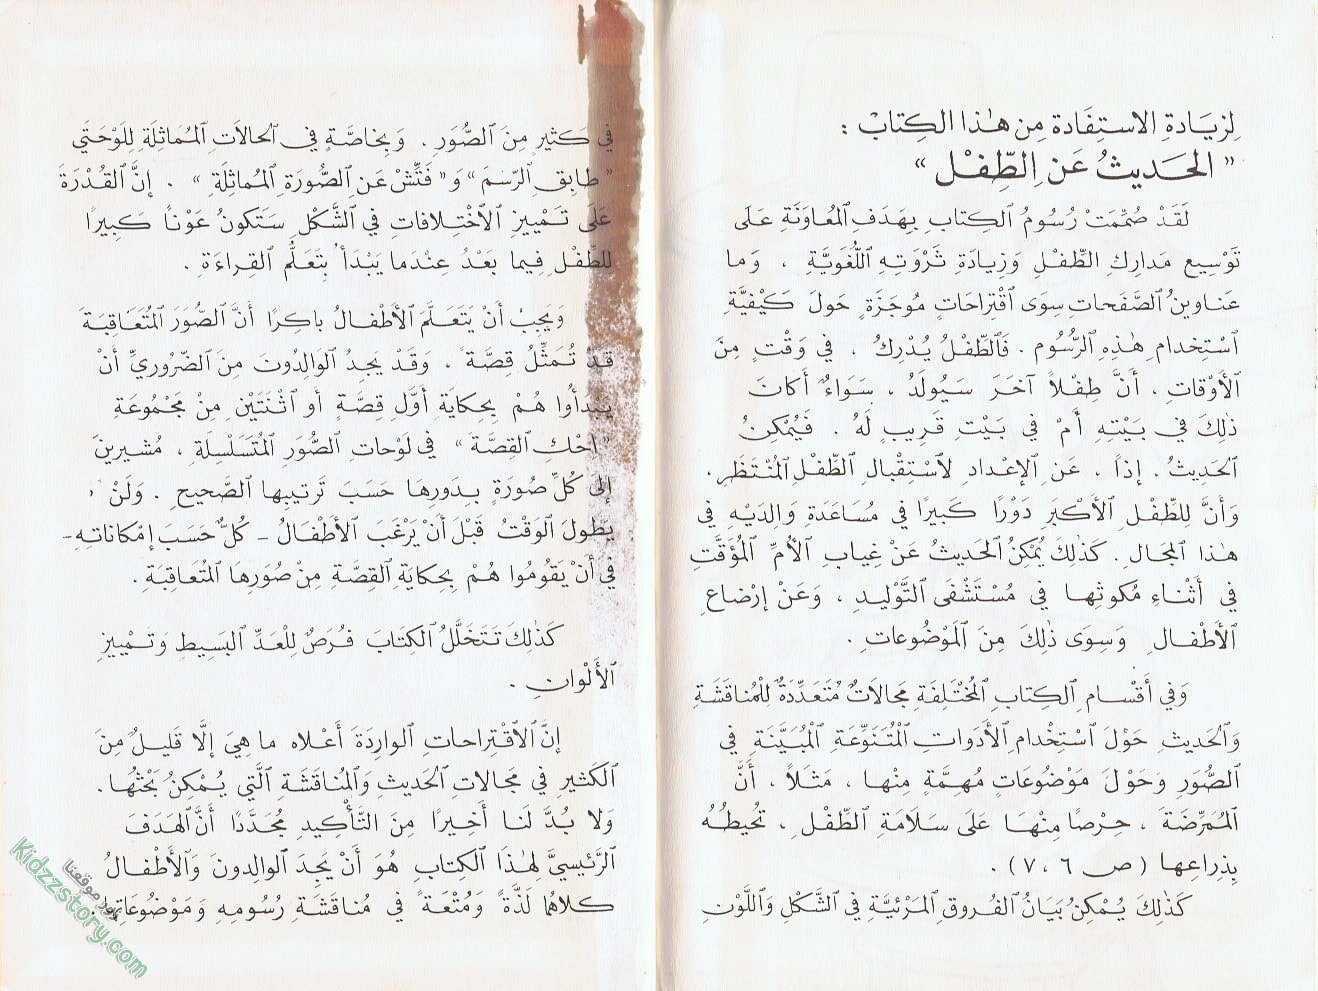 لِزِيَادَةِ الاسْتِفَادَةِ مِن هٰذا الكِتابْ :
« الحَديثُ عَنِ الطِّفْل »
لَقَدْ صُمِّمَتْ رُسُومُ الكِتابِ بِهَدَفِ المُعاوَنَةِ عَلَى
تَوْسِيعِ مَدارِكِ الطِّفْلِ وَزِيادَةِ ثَرْوَتِهِ اللُّغَوِيَّةِ ، وَما
عَناوِينُ الصَّفَحاتِ سِوَى اقْتِراحاتٍ مُوجَزَةٍ حَولَ كَيْفِيَّةِ
اسْتِخْدامِ هٰذِهِ الرُّسُومِ . فَالطِّفْلُ يُدْرِكُ ، في وَقْتٍ مِنَ
الأَوْقاتِ ، أَنَّ طِفْلاً آخَرَ سَيُولَدُ ، سَوَاءٌ أَكانَ
ذٰلِكَ في بَيْتِهِ أَمْ في بَيْتِ قَرِيبٍ لَهُ . فَيُمْكِنُ
الحَدِيثُ . إِذاً ، عَنِ الإِعْدادِ لاسْتِقْبالِ الطِّفْلِ المُنْتَظَرِ .
وَأَنَّ لِلطِّفْلِ الأَكْبَرِ دَوْرًا كَبيرًا في مُسَاعَدَةِ والِدَيْهِ في
هٰذا المَجالِ . كَذٰلِكَ يُمْكِنُ الحَدِيثُ عَنْ غِيابِ الأُمِّ المُؤَقَّتِ
في أَثْناءِ مُكوثِها في مُسْتَشْفَى التَّوْلِيدِ ، وَعَنْ إِرْضاعِ
الأَطْفالِ وَسِوَى ذٰلِكَ مِنَ المَوْضُوعاتِ .
وَفي أَقْسامِ الكِتابِ المُخْتَلِفَةِ مَجالاتٌ مُتَعَدِّدَةٌ لِلْمُناقَشَةِ
وَالحَديثِ حَوْلَ اسْتِخْدامِ الأَدَواتِ المُتَنَوِّعَةِ المُبَيَّنَةِ في
الصُّوَرِ وَحَوْلَ مَوْضُوعاتٍ مُهِمَّةٍ مِنْها ، مَثَلاً ، أَنَّ
المُمَرِّضَةَ ، حِرْصًا مِنْها عَلَى سَلامَةِ الطِّفْلِ ، تُحيطُهُ
بِذِراعِها ( ص ٦ ، ٧ ) .
كَذٰلِكَ يُمْكِنُ بَيَانُ الفُروقِ المَرْئِيَّةِ في الشَّكْلِ وَاللَّوْنِ
في كَثيرٍ مِنَ الصُّوَرِ . وَبِخاصَّةٍ في الحالاتِ المُماثِلَةِ لِلَوْحَتَي
« طابِقِ الرَّسْمَ » وَ « فَتِّشْ عَنِ الصُّورَةِ المُماثِلَةِ » . إِنَّ القُدْرَةَ
عَلَى تَمْييزِ الاخْتِلافاتِ في الشَّكْلِ سَتَكونُ عَوْناً كَبيرًا
لِلطِّفْلِ فِيما بَعْدُ عِنْدَما يَبْدَأُ بِتَعَلُّمِ القِراءَةِ .
وَيَجِبُ أَنْ يَتَعَلَّمَ الأَطْفالُ باكِرًا أَنَّ الصُّوَرَ المُتَعاقِبَةَ
قَدْ تُمَثِّلُ قِصَّةً ، وَقَدْ يَجِدُ الوالِدُونَ مِنَ الضَّرُوريِّ أَنْ
يَبْدأُوا هُمْ بِحِكايَةِ أَوَّلِ قِصَّةٍ أَو اثْنَتَيْنِ مِنْ مَجْمُوعَةِ
« احْكِ القِصَّةَ » في لَوْحاتِ الصُّوَرِ المُتَسَلْسِلَةِ ، مُشيرينَ
إِلى كُلِّ صُورَةٍ بِدَورِها حَسَبَ تَرتيبِها الصَّحيحِ . وَلَنْ
يَطُولَ الوَقْتُ قَبْلَ أَنْ يَرْغَبَ الأَطْفالُ - كُلٌّ حَسَبَ إِمْكاناتِهِ -
في أَنْ يَقُومُوا هُمْ بِحِكايَةِ القِصَّةِ مِنْ صُوَرِها المُتَعاقِبَةِ .
كَذٰلِكَ تَتَخَلَّلُ الكِتَابَ فُرَصٌ لِلْعَدِّ البَسيطِ وَتَمْييزِ
الأَلْوانِ .
إِنَّ الاقْتِراحاتِ الوارِدَةَ أَعْلاه ما هِيَ إِلَّا قَليلٌ مِنَ
الكَثيرِ في مَجالاتِ الحَديثِ وَالمُناقَشَةِ الَّتي يُمْكِنُ بَحْثُها .
وَلا بُدَّ لَنا أَخيرًا مِنَ التَّأْكِيدِ مُجَدَّدًا أَنَّ الهَدَفَ
الرَّئيسيَّ لِهٰذَا الكِتابِ هُوَ أَنْ يَجِدَ الوالِدونَ وَالأَطْفالُ
كِلاهُما لَذَّةً وَمُتْعَةً في مُناقَشَةِ رُسُومِهِ وَمَوْضُوعاتِهِ .
زوروا موقعنا
Kidzzstory.com